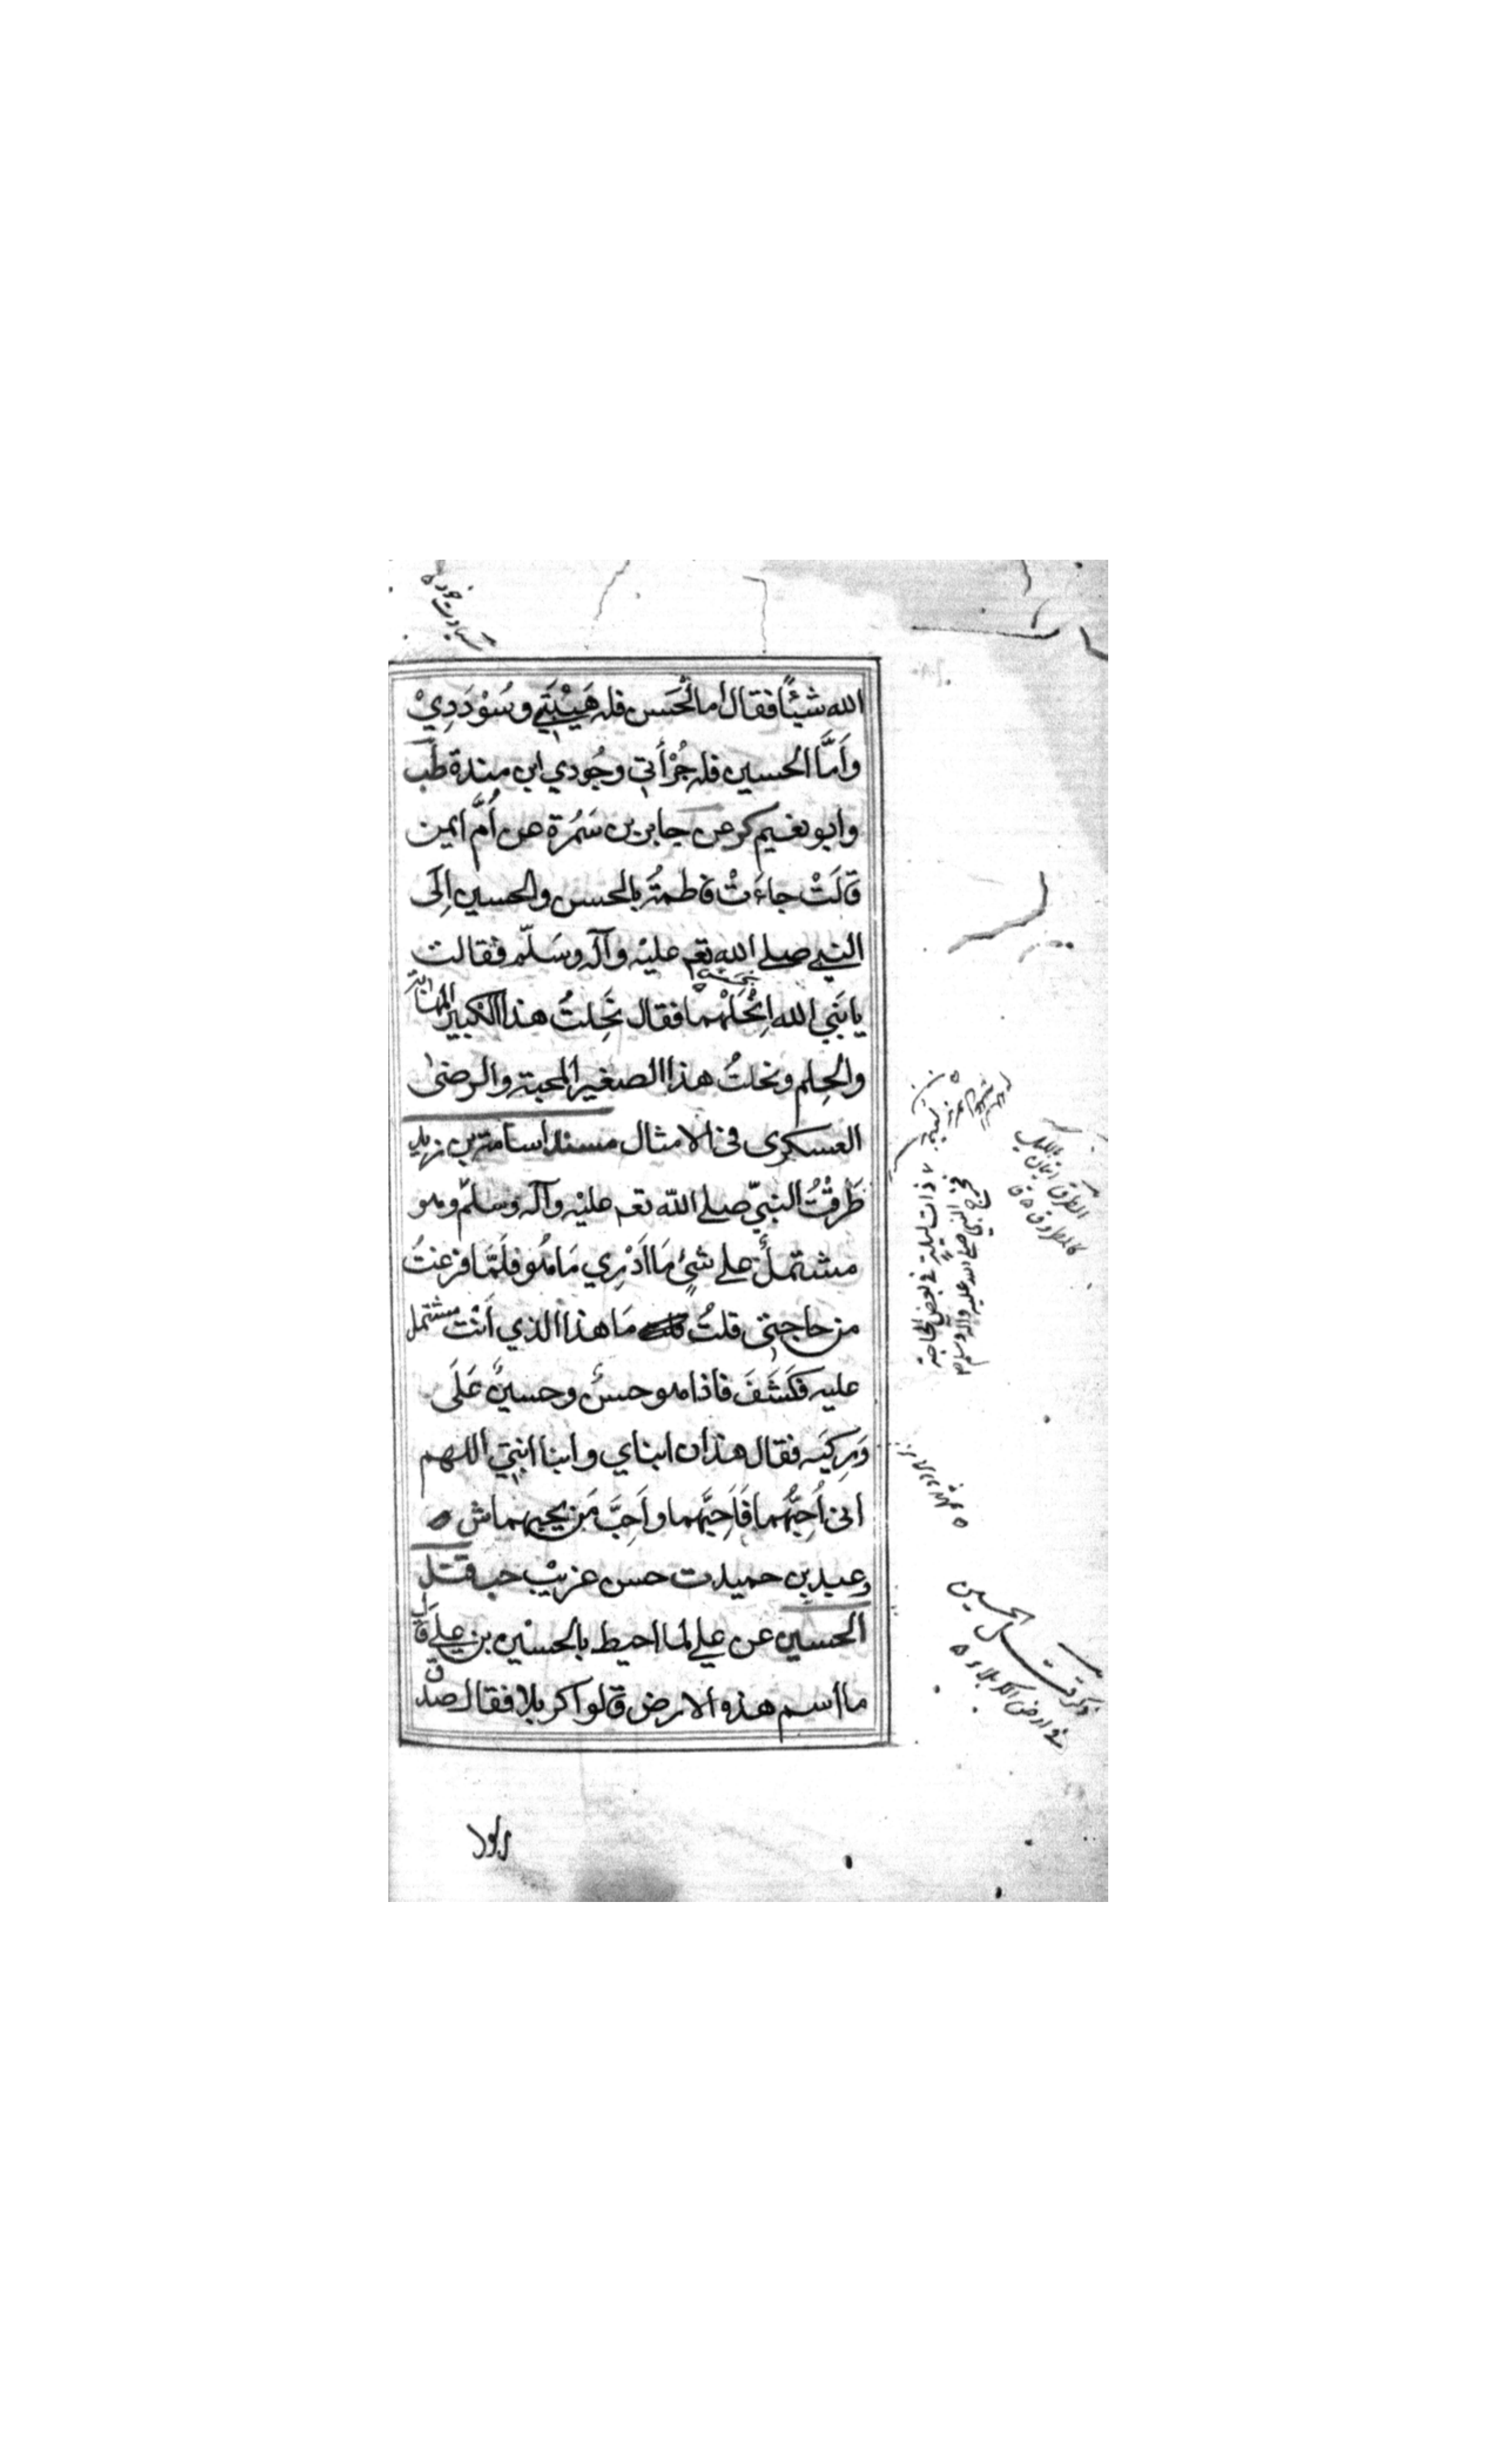 الله شيئًا فقال اما الحَسن فله هَيْبَتِي وسُوْدَدِيْ
وأَمَّا الحسين فله جُرْأَتي وجُودي ابن مندة طب
وابو نعيم كر عن جابر بن سَمُرة عن أُمّ ايمن
قالَتْ جاءَتْ فاطمةُ بالحسن والحسين اِلَى
النبي صلى الله تعم عليه وآله وسَلّم فقالت
يا نَبِي الله اِنْحَلْهُما فقال نَحِلتُ هذا الكبير المهابة
والحِلم ونحلتُ هذا الصغير المحبة والرضىٰ
العسكرى فى الامثال مسند اسامة بن زيد
طَرقْتُ النبيّ صلى الله تعم عليه وآله وسلم وهو
مشتملٌ على شيٍ مَا اَدْرِي مَا هُو فلَمَّا فرغتُ
من حاجتى قلتُ مَا هذا الذي اَنْت مشتمل
عليه فكَشَفَ فاذا هو حسنٌ وحسينٌ عَلَى
وَرِكَيه فقال هذان ابناي وابنا ابنتِي اللهم
انى اُحِبُّهما فَاَحِبَّهما واَحِبَّ مَن يحبهما ش
وعبد بن حميد ت حسن غريب حب قتل
الحسين عن علي لما احيط بالحسين بن علي قال
ما اسم هذه الارض قالوا كربلا فقال صدق
ذات ليلةٍ في بعض الحاجة
فخرج النبي صلى الله عليه وآله وسلم
الطرق اتيان بالليل
ذكر قتل الحسين
في ارض الكربلاء